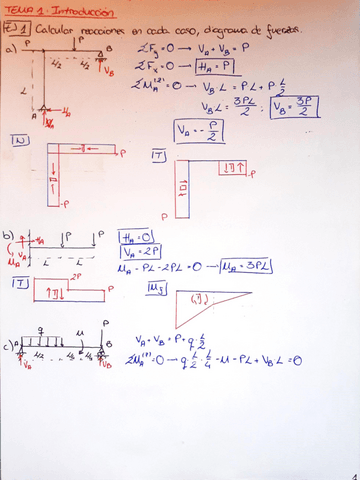 TEMA 1 - Introducción
EJ 1 Calcular reacciones en cada caso, diagrama de fuerzas.
a) P P B
L/2 L/2 V_B
L
A H_A
V_A
ΣF_y = 0 → V_A + V_B = P
ΣF_x = 0 → H_A = P
ΣM_A = 0 → V_B · L = PL + P L/2
V_B L = 3PL/2 ; V_B = 3P/2
V_A = - P/2
N
P
-P
T
-P
P
b) H_A P P
M_A V_A L L
H_A = 0
V_A = 2P
M_A - PL - 2PL = 0 → M_A = 3PL
T 2P
P
M_f
c) A q M P B
V_A V_B
V_A + V_B = P + q L/2
ΣM_A = 0 → q · L/2 · L/4 - M - PL + V_B L = 0